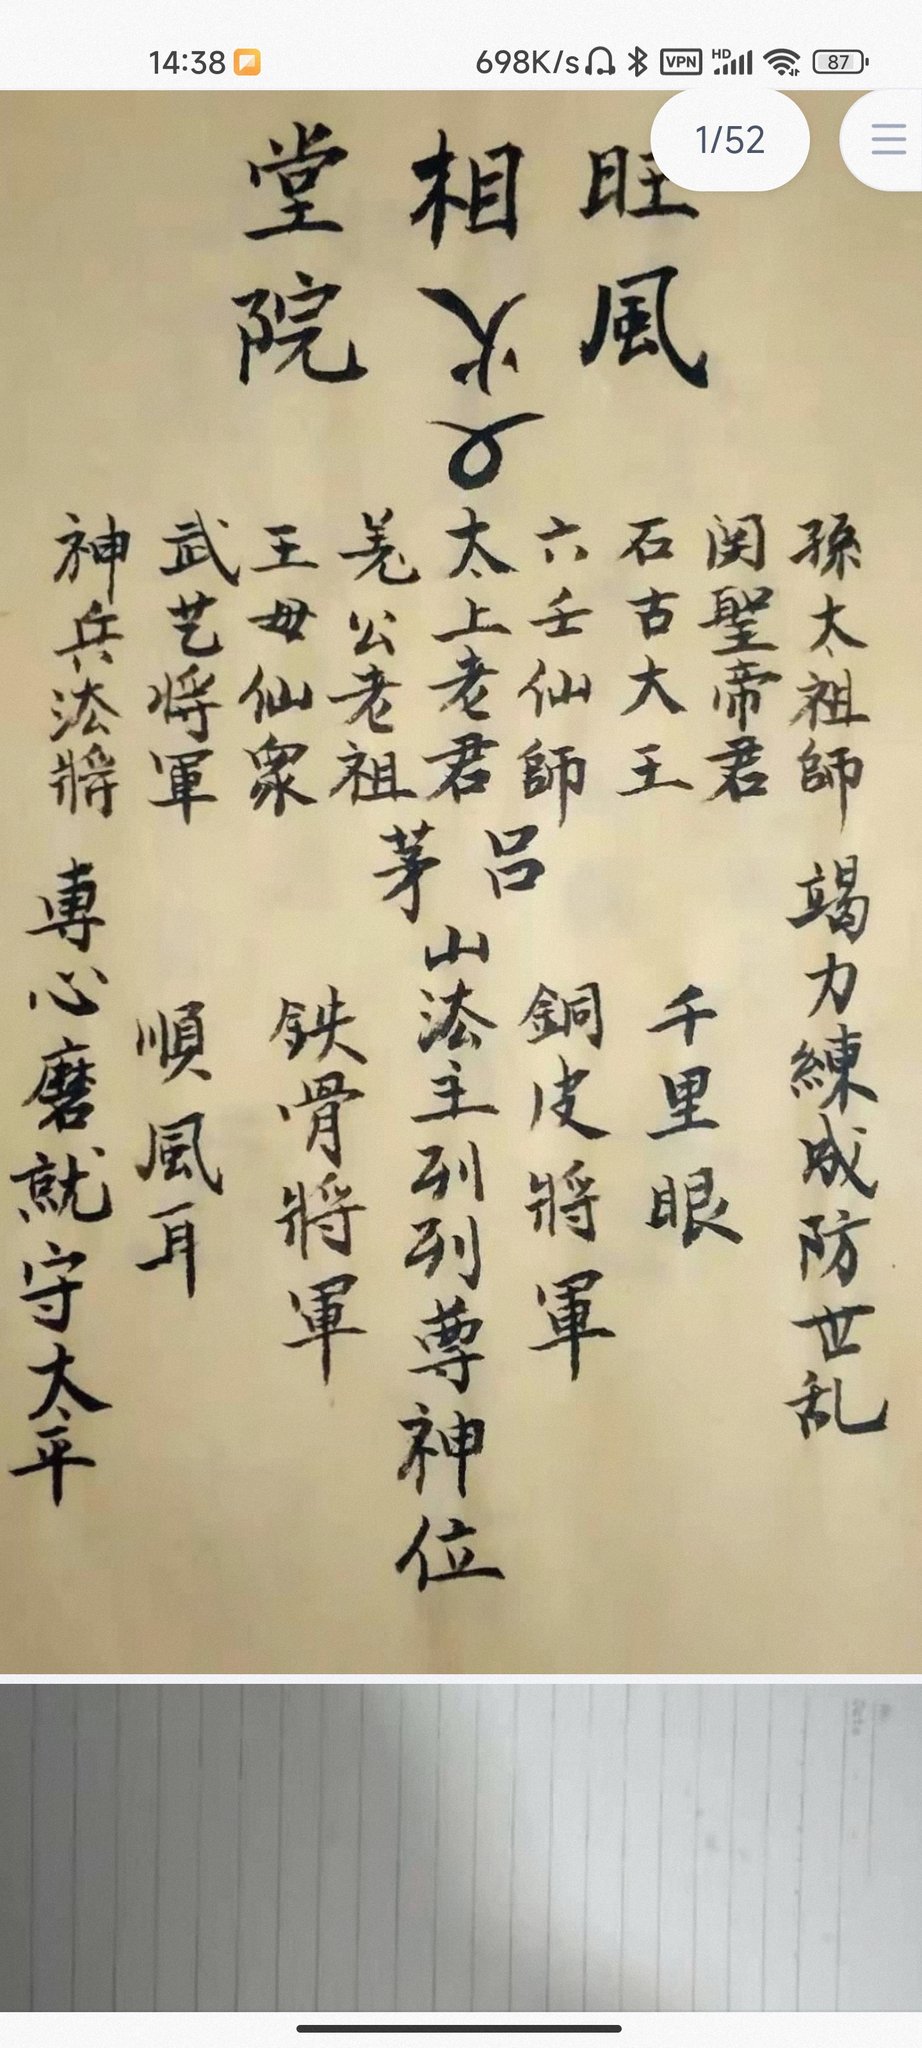 14:38
698K/s VPN HD 87
1/52
旺相堂
風火院
孫太祖師
関聖帝君
石古大王
六壬仙師
太上老君
羌公老祖
王母仙衆
武艺将軍
神兵法將
竭力練成防世乱
千里眼
銅皮將軍
呂茅山法主列列尊神位
鉄骨將軍
順風耳
專心磨就守太平